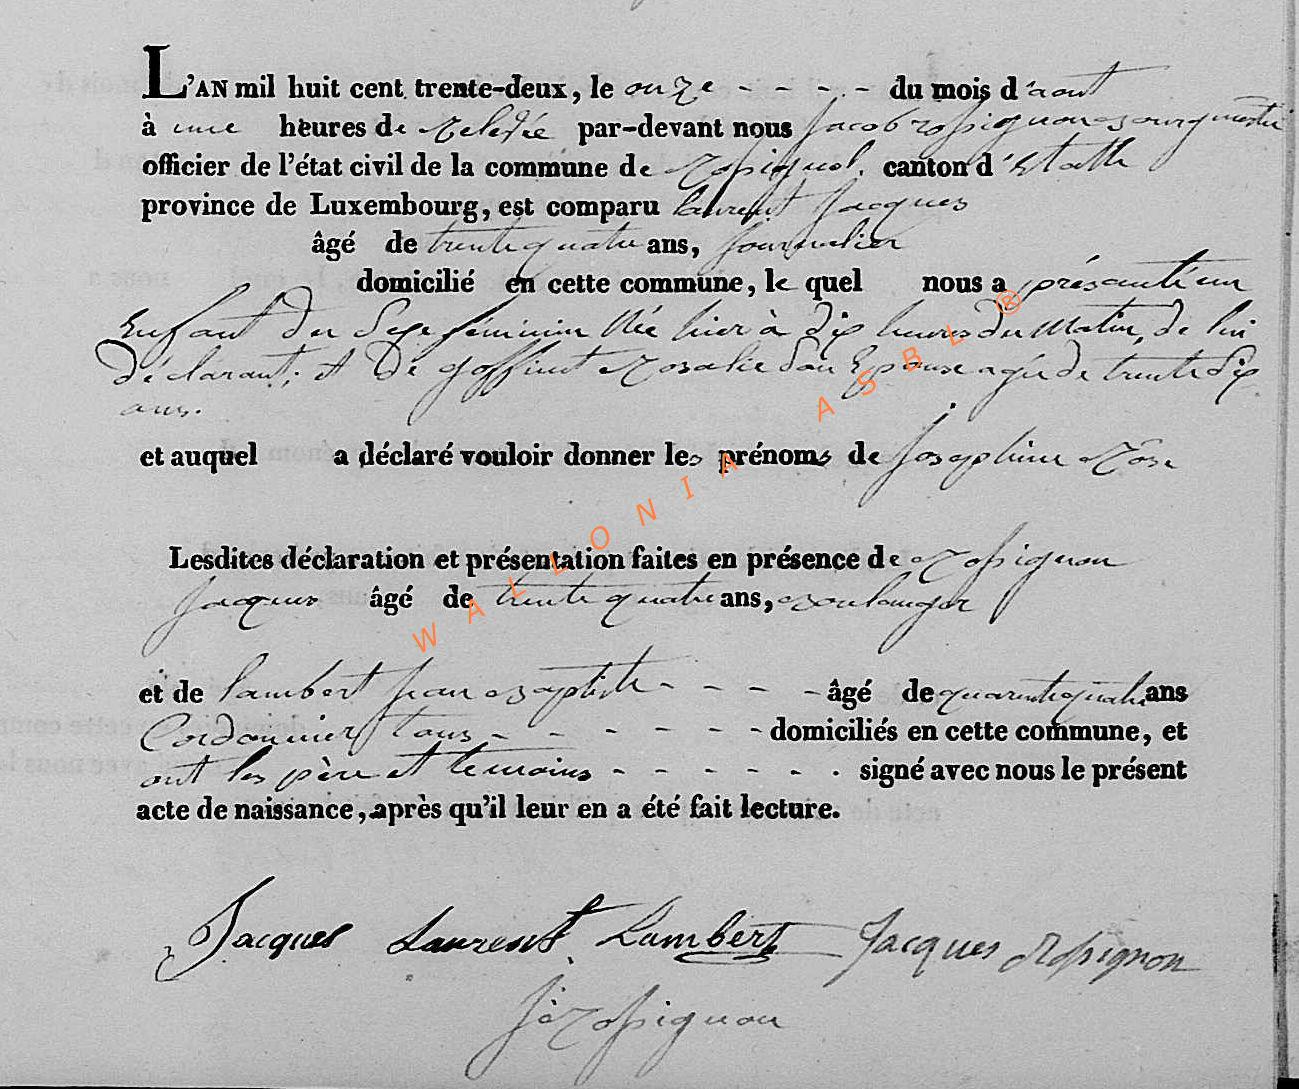 L'AN mil huit cent trente-deux, le onze - - - - - du mois d'aout
à une heures de relevée par-devant nous Jacob Rossignon Bourgmestre
officier de l'état civil de la commune de Rossignol. canton d'Etalle
province de Luxembourg, est comparu laurent Jacques
âgé de trente quatre ans, Journalier
domicilié en cette commune, le quel nous a présenté un
Enfant du Sexe féminin Née hier à dix heures du Matin, de lui
déclarant; et De Goffinet Rosalie son Epouse agée de trente six
ans.
et auquel a déclaré vouloir donner les prénoms de Josephine Rose
Lesdites déclaration et présentation faites en présence de Rossignon
Jacques âgé de trente quatre ans, Boulanger
et de lambert jean Baptiste - - - - âgé de quarante quatre ans
Cordonnier tous - - - - - - - domiciliés en cette commune, et
ont les père et temoins - - - - - - signé avec nous le présent
acte de naissance, après qu'il leur en a été fait lecture.
Jacques Laurent Lambert Jacques Rossignon
J: Rossignon
WALLONIA ASBL ®